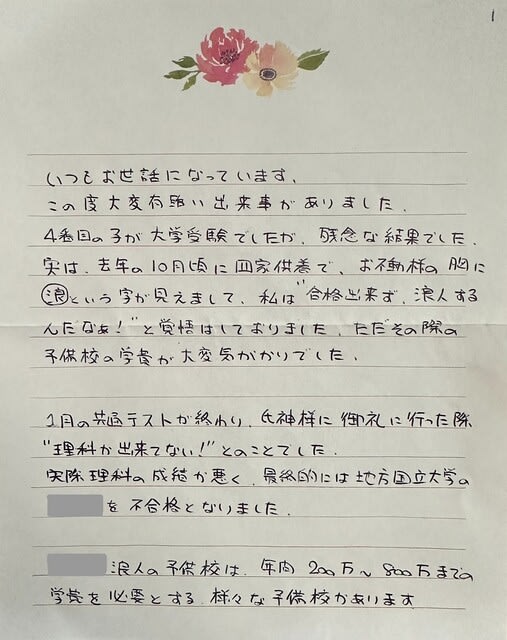 1
いつもお世話になっています。
この度大変有難い出来事がありました。
4番目の子が大学受験でしたが、残念な結果でした。
実は、去年の10月頃に回家供養で、お不動様の胸に
浪という字が見えまして、私は"合格出来ず、浪人する
んだなぁ!"と覚悟はしておりました。ただその際の
予備校の学費が大変気がかりでした。
1月の共通テストが終わり、氏神様に御礼に行った際
"理科が出来てない!"とのことでした。
実際理科の成績が悪く、最終的には地方国立大学の
を不合格となりました。
浪人の予備校は、年間200万〜800万までの
学費を必要とする、様々な予備校があります